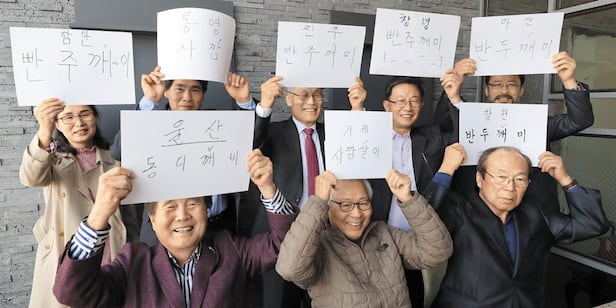 함안
빤주깨~이
통영
사깜
진주
반주깨미
창녕
반주깨미
(. . . . ?)
마산
반두깨미
울산
동디깨비
거제
사깜살이
창원
반두깨미